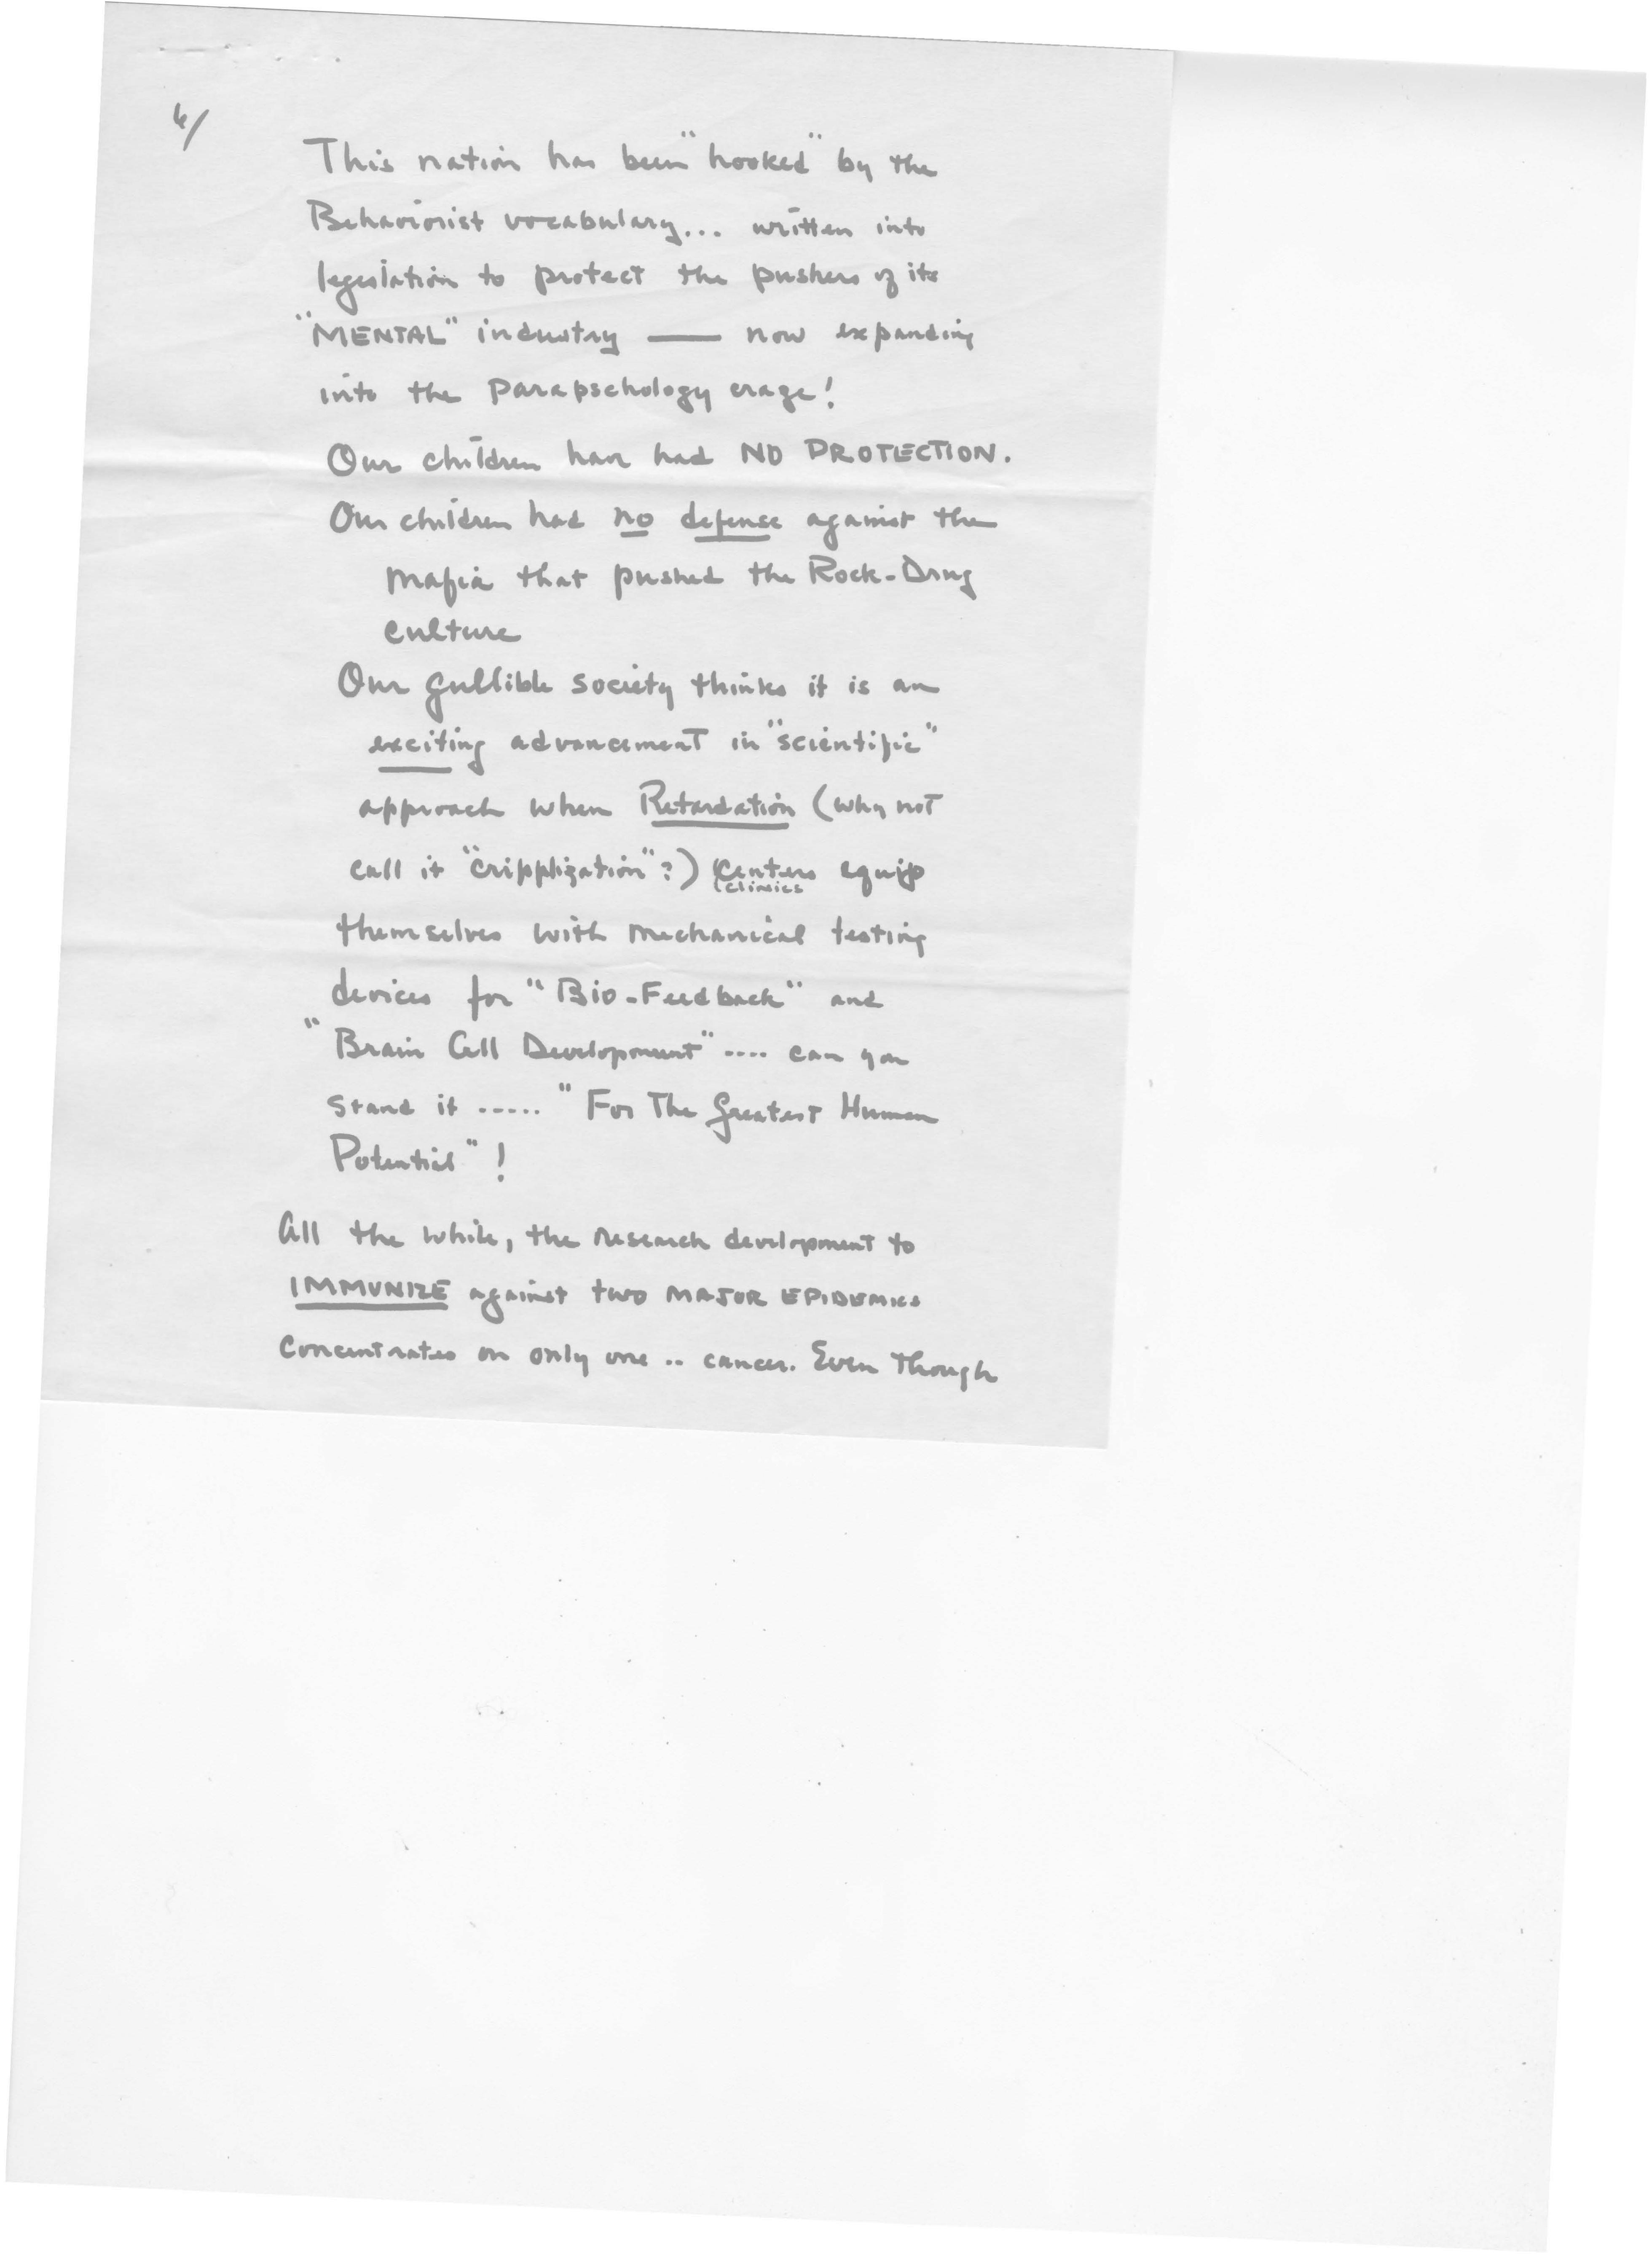 6/
This nation has been "hooked" by the
Behaviorist vocabulary... written into
legislation to protect the pushers of its
"MENTAL" industry — now expanding
into the Parapschology craze!
Our children have had NO PROTECTION.
Our children had no defense against the
mafia that pushed the Rock-Drug
culture
Our gullible society thinks it is an
exciting advancement in "scientific"
approach when Retardation (why not
call it "cripplization"?) centers equip
(clinics
themselves with mechanical testing
devices for "Bio-Feedback" and
"Brain Cell Development".... can you
stand it ..... "For The Greatest Human
Potential"!
All the while, the research development to
IMMUNIZE against two MAJOR EPIDEMICS
concentrates on only one .. cancer. Even though